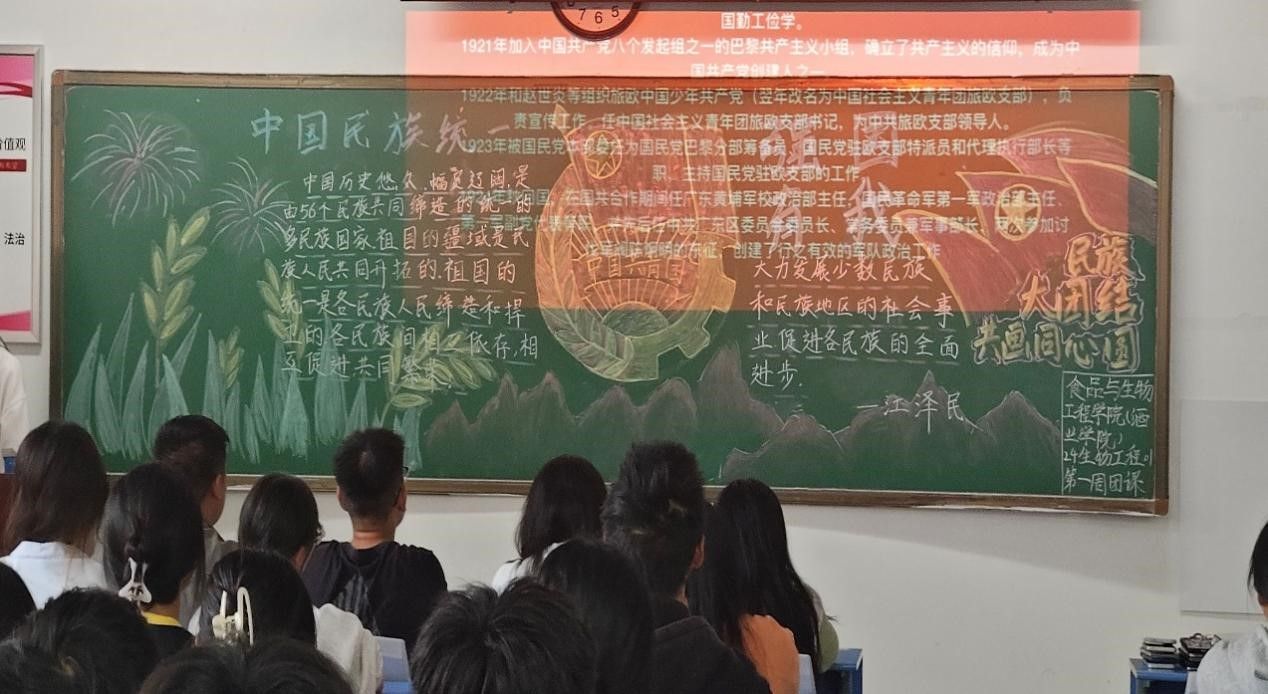 7 6 5
国勤工俭学。
1921年加入中国共产党八个发起组之一的巴黎共产主义小组，确立了共产主义的信仰，成为中
国共产党创建人之一
1922年和赵世炎等组织旅欧中国少年共产党（翌年改名为中国社会主义青年团旅欧支部），负
责宣传工作，任中国社会主义青年团旅欧支部书记，为中共旅欧支部领导人。
1923年被国民党 委任为国民党巴黎分部筹备员、国民党驻欧支部特派员和代理执行部长等
职，主持国民党驻欧支部的工作
回国，在国共合作期间任广东黄埔军校政治部主任、国民革命军第一军政治部主任、
第一军副党代表等职，并先后任中共广东区委员会委员长、常务委员兼军事部长，两次参加讨
伐军阀陈炯明的东征，创建了行之有效的军队政治工作
价值观
法治
中国民族统一
强国有我
中国历史悠久,幅员辽阔,是
由56个民族共同缔造的统一的
多民族国家,祖国的疆域是各民
族人民共同开拓的,祖国的
统一是各民族人民缔造和捍
卫的各民族间相互依存,相
互促进共同繁荣.
中国共青团
大力发展少数民族
和民族地区的社会事
业,促进各民族的全面
进步.
—江泽民
民族
大团结
共画同心圆
食品与生物
工程学院(酒
业学院)
24生物工程01
第一周团课